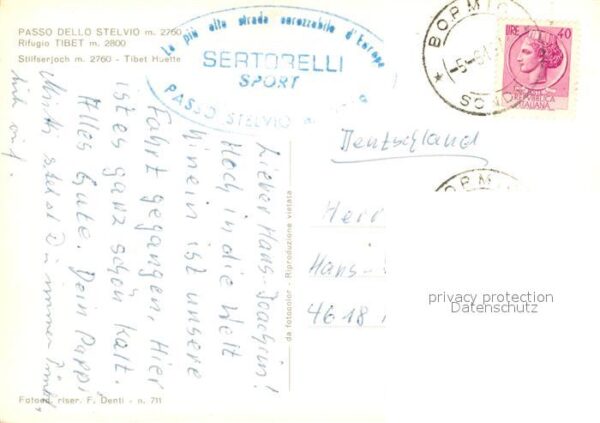 PASSO DELLO STELVIO m. 2760
Rifugio TIBET m. 2800
Stilfserjoch m. 2760 - Tibet Huette
La più alta strada carrozzabile d'Europa
SERTORELLI
SPORT
PASSO STELVIO
BORMIO
LIRE 40
REPUBBLICA
ITALIANA
Deutschland
Lieber Hans-Joachim!
Hoch in die Welt
hinein ist unsere
Fahrt gegangen. Hier
ist es ganz schön kalt.
Alles Gute. Dein Pappi
da fotocolor - Riproduzione vietata
Herr
Hans-
4618
privacy protection
Datenschutz
F. Denti - n. 711